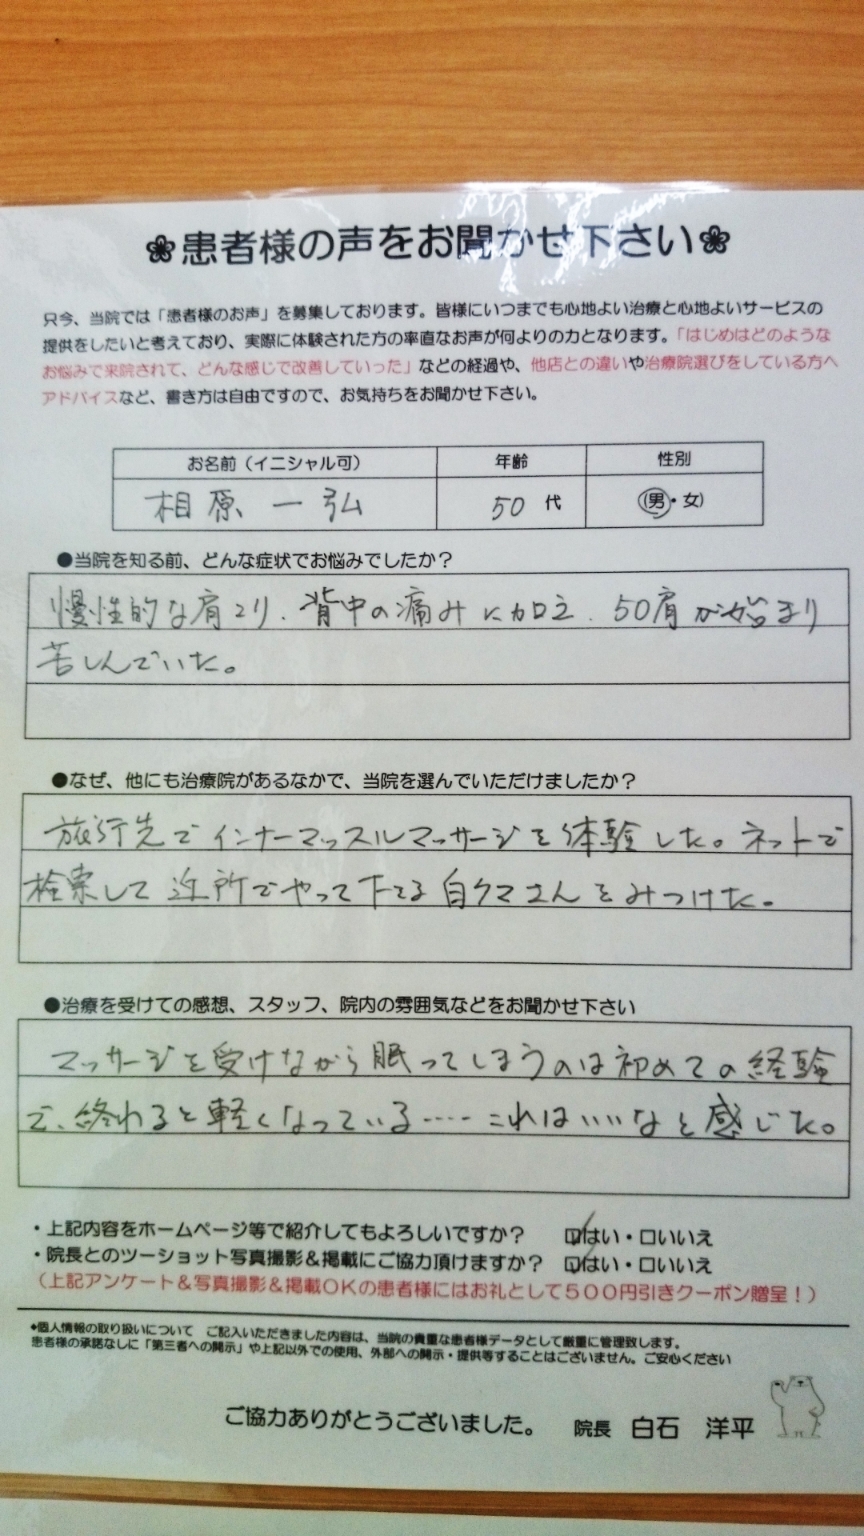 ❀患者様の声をお聞かせ下さい❀
只今、当院では「患者様のお声」を募集しております。皆様にいつまでも心地よい治療と心地よいサービスの
提供をしたいと考えており、実際に体験された方の率直なお声が何よりの力となります。「はじめはどのような
お悩みで来院されて、どんな感じで改善していった」などの経過や、他店との違いや治療院選びをしている方へ
アドバイスなど、書き方は自由ですので、お気持ちをお聞かせ下さい。
お名前（イニシャル可） 年齢 性別
相原 一弘 50 代 (男・女)
●当院を知る前、どんな症状でお悩みでしたか？
慢性的な肩コリ、背中の痛みに加え、50肩が始まり
苦しんでいた。
●なぜ、他にも治療院があるなかで、当院を選んでいただけましたか？
旅行先でインナーマッスルマッサージを体験した。ネットで
検索して近所でやってた白クマさんをみつけた。
●治療を受けての感想、スタッフ、院内の雰囲気などをお聞かせ下さい
マッサージを受けながら眠ってしまうのは初めての経験
で、終わると軽くなっている……これはいいなと感じた。
・上記内容をホームページ等で紹介してもよろしいですか？ ☑はい・□いいえ
・院長とのツーショット写真撮影＆掲載にご協力頂けますか？ ☑はい・□いいえ
（上記アンケート＆写真撮影＆掲載ＯＫの患者様にはお礼として５００円引きクーポン贈呈！）
◆個人情報の取り扱いについて ご記入いただきました内容は、当院の貴重な患者様データとして厳重に管理致します。
患者様の承諾なしに「第三者への開示」や上記以外での使用、外部への開示・提供等することはございません。ご安心ください
ご協力ありがとうございました。 院長 白石 洋平